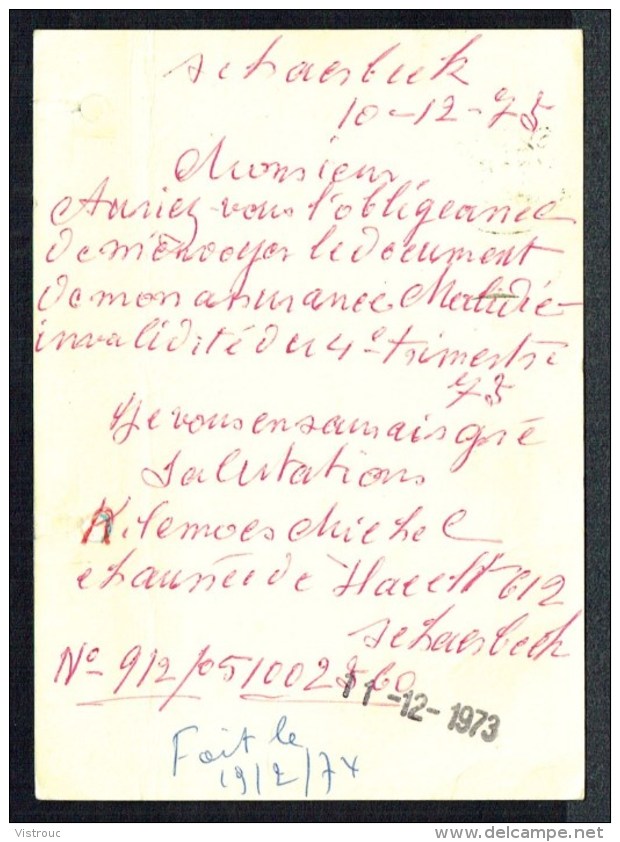 Schaerbeek
10-12-73
Monsieur
Auriez-vous l'obligeance
de m'envoyer le document
de mon assurance Maladie-
invalidité du 4e trimestre
73
Je vous en saurais gré
Salutations
Michel
chaussée de Haecht 612
Schaerbeek
No 912/05/002
11-12-1973
Fait le
19/2/74
Vistrouc
www.delcampe.net